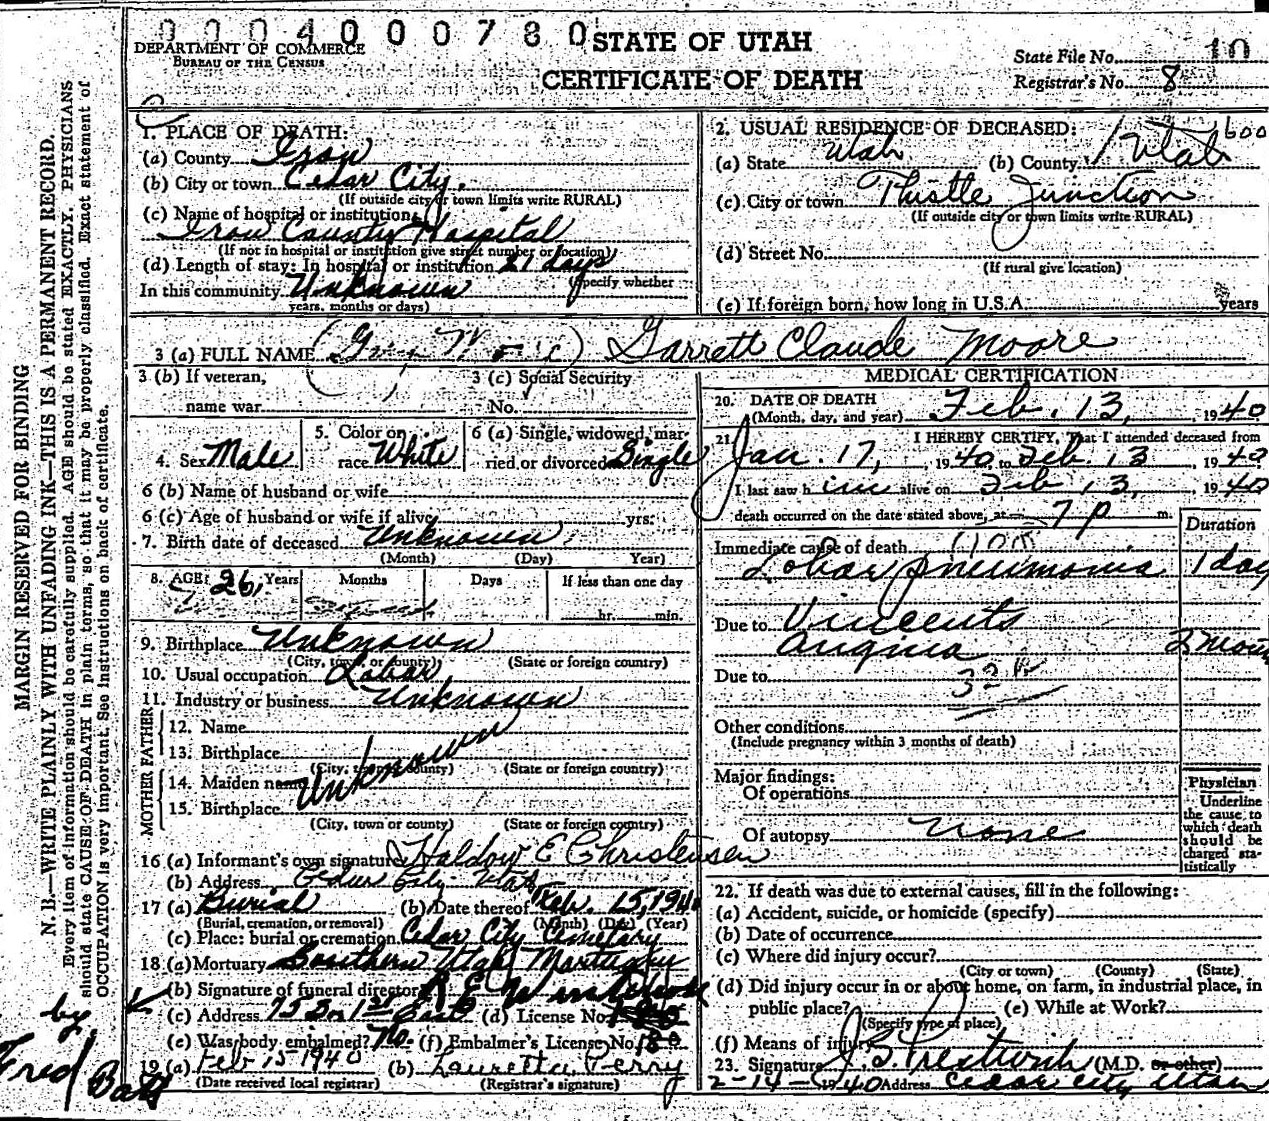 0004000780
DEPARTMENT OF COMMERCE
BUREAU OF THE CENSUS
STATE OF UTAH
CERTIFICATE OF DEATH
State File No. 10
Registrar's No. 8
MARGIN RESERVED FOR BINDING
N. B.—WRITE PLAINLY WITH UNFADING INK—THIS IS A PERMANENT RECORD.
Every item of information should be carefully supplied. AGE should be stated EXACTLY. PHYSICIANS
should state CAUSE OF DEATH in plain terms, so that it may be properly classified. Exact statement of
OCCUPATION is very important. See instructions on back of certificate.
1. PLACE OF DEATH:
(a) County Iron
(b) City or town Cedar City.
(If outside city or town limits write RURAL)
(c) Name of hospital or institution
Iron County Hospital
(If not in hospital or institution give street number or location)
(d) Length of stay: In hospital or institution 21 days
(Specify whether
In this community Unknown
years, months or days)
2. USUAL RESIDENCE OF DECEASED: 600
(a) State Utah (b) County Utah
(c) City or town Thistle Junction
(If outside city or town limits write RURAL)
(d) Street No.
(If rural give location)
(e) If foreign born, how long in U.S.A. years
3 (a) FULL NAME Garrett Claude Moore
3 (b) If veteran, 3 (c) Social Security
name war No.
4. Sex Male 5. Color or race White 6 (a) Single, widowed, married or divorced Single
6 (b) Name of husband or wife
6 (c) Age of husband or wife if alive yrs.
7. Birth date of deceased Unknown
(Month) (Day) Year)
8. AGE: 26 Years Months Days If less than one day
hr. min.
9. Birthplace Unknown
(City, town, or county) (State or foreign country)
10. Usual occupation Labor
11. Industry or business Unknown
FATHER
12. Name
13. Birthplace Unknown
(City, town or county) (State or foreign country)
MOTHER
14. Maiden name Unknown
15. Birthplace
(City, town or county) (State or foreign country)
16 (a) Informant's own signature Waldow E Christensen
(b) Address Cedar City Utah
17 (a) Burial (b) Date thereof Feb. 15, 1940
(Burial, cremation, or removal) (Month) (Day) (Year)
(c) Place: burial or cremation Cedar City Cemetary
18. (a) Mortuary Southern Utah Mortuary
(b) Signature of funeral director
(c) Address 75 So 1st East (d) License No.
(e) Was body embalmed? No. (f) Embalmer's License No. 180
19 (a) Feb 15 1940 (b) Lauretta Perry
(Date received local registrar) (Registrar's signature)
by
Fred
MEDICAL CERTIFICATION
20. DATE OF DEATH
(Month, day, and year) Feb. 13, 1940
21. I HEREBY CERTIFY, That I attended deceased from
Jan. 17, 1940 to Feb. 13, 1940
I last saw him alive on Feb 13, 1940
death occurred on the date stated above, at 7 p m.
Duration
Immediate cause of death
Lobar pneumonia 1 day
Due to Vincents
Angina
Due to
Other conditions
(Include pregnancy within 3 months of death)
Major findings:
Of operations
Of autopsy none
Physician
Underline
the cause to
which death
should be
charged sta-
tistically
22. If death was due to external causes, fill in the following:
(a) Accident, suicide, or homicide (specify)
(b) Date of occurrence
(c) Where did injury occur?
(City or town) (County) (State)
(d) Did injury occur in or about home, on farm, in industrial place, in
public place? (e) While at Work?
(Specify type of place)
(f) Means of injury
23. Signature J. S. Prestwich (M.D. or other)
2-14-1940 Address Cedar City Utah